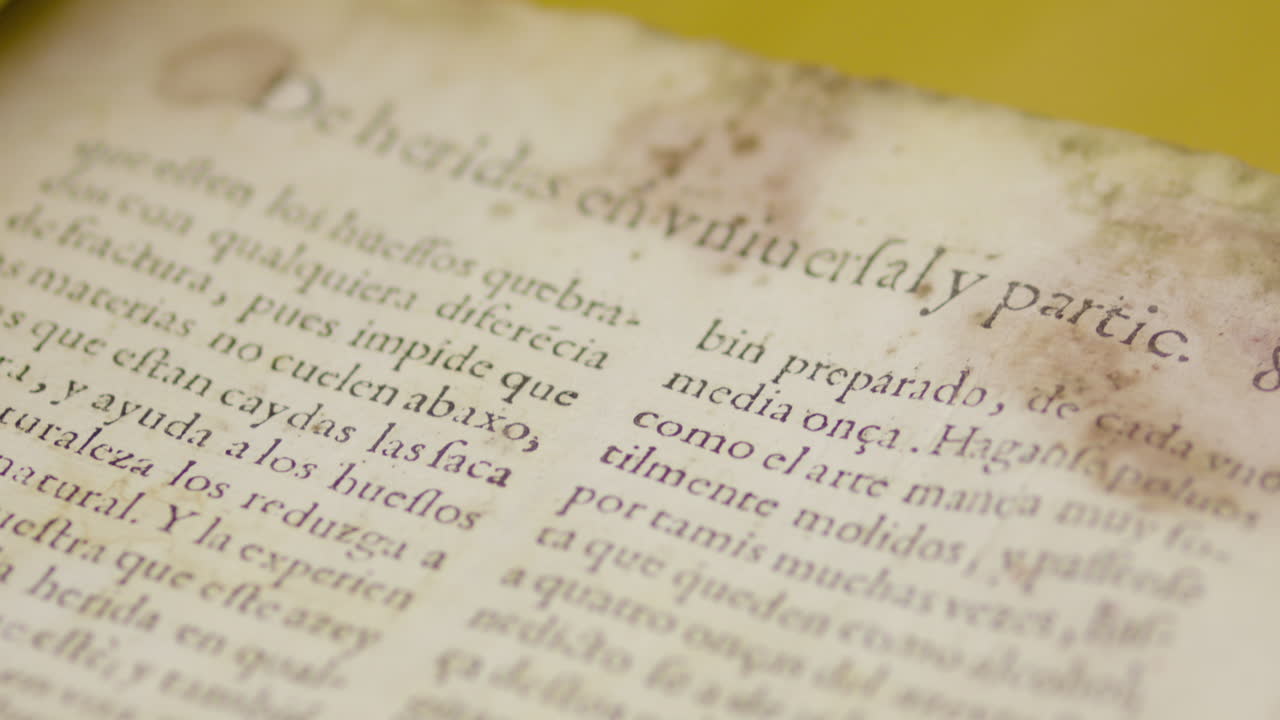 De heridas en vniuerſal y partic.
que eſten los hueſſos quebra-
dos con qualquiera diferẽcia
de fractura, pues impide que
materias no cuelen abaxo,
que eſtan caydas las ſaca
, y ayuda a los hueſſos
los reduzga a
natural. Y la experien
que eſte azey
herida en qual-
eſtè, y tambiẽ
bin preparado, de cada vno
media onça. Haganſe poluos
como el arte manda muy ſu-
tilmente molidos, y paſſenſe
por tamis muchas vezes, haſ-
ta que queden como alcohol,
a quatro onças del
nedicto ſe a de